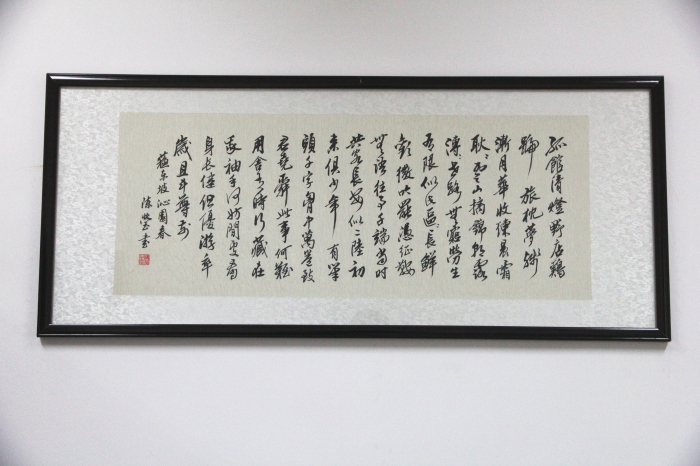 孤館清燈野店鷄
號旅枕夢殘
漸月華收練晨霜
耿〻雲山摛錦朝露
漙〻世路無窮勞生
有限似此區〻長鮮
歡微吟罷憑征鞍
無語往事千端當時
共客長安似二陸初
來俱少年有筆
頭千字胸中萬卷致
君堯舜此事何難
用舍由時行藏在
我袖手何妨閒處看
身長健但優游卒
歲且斗尊前
蘇東坡沁園春
陳書